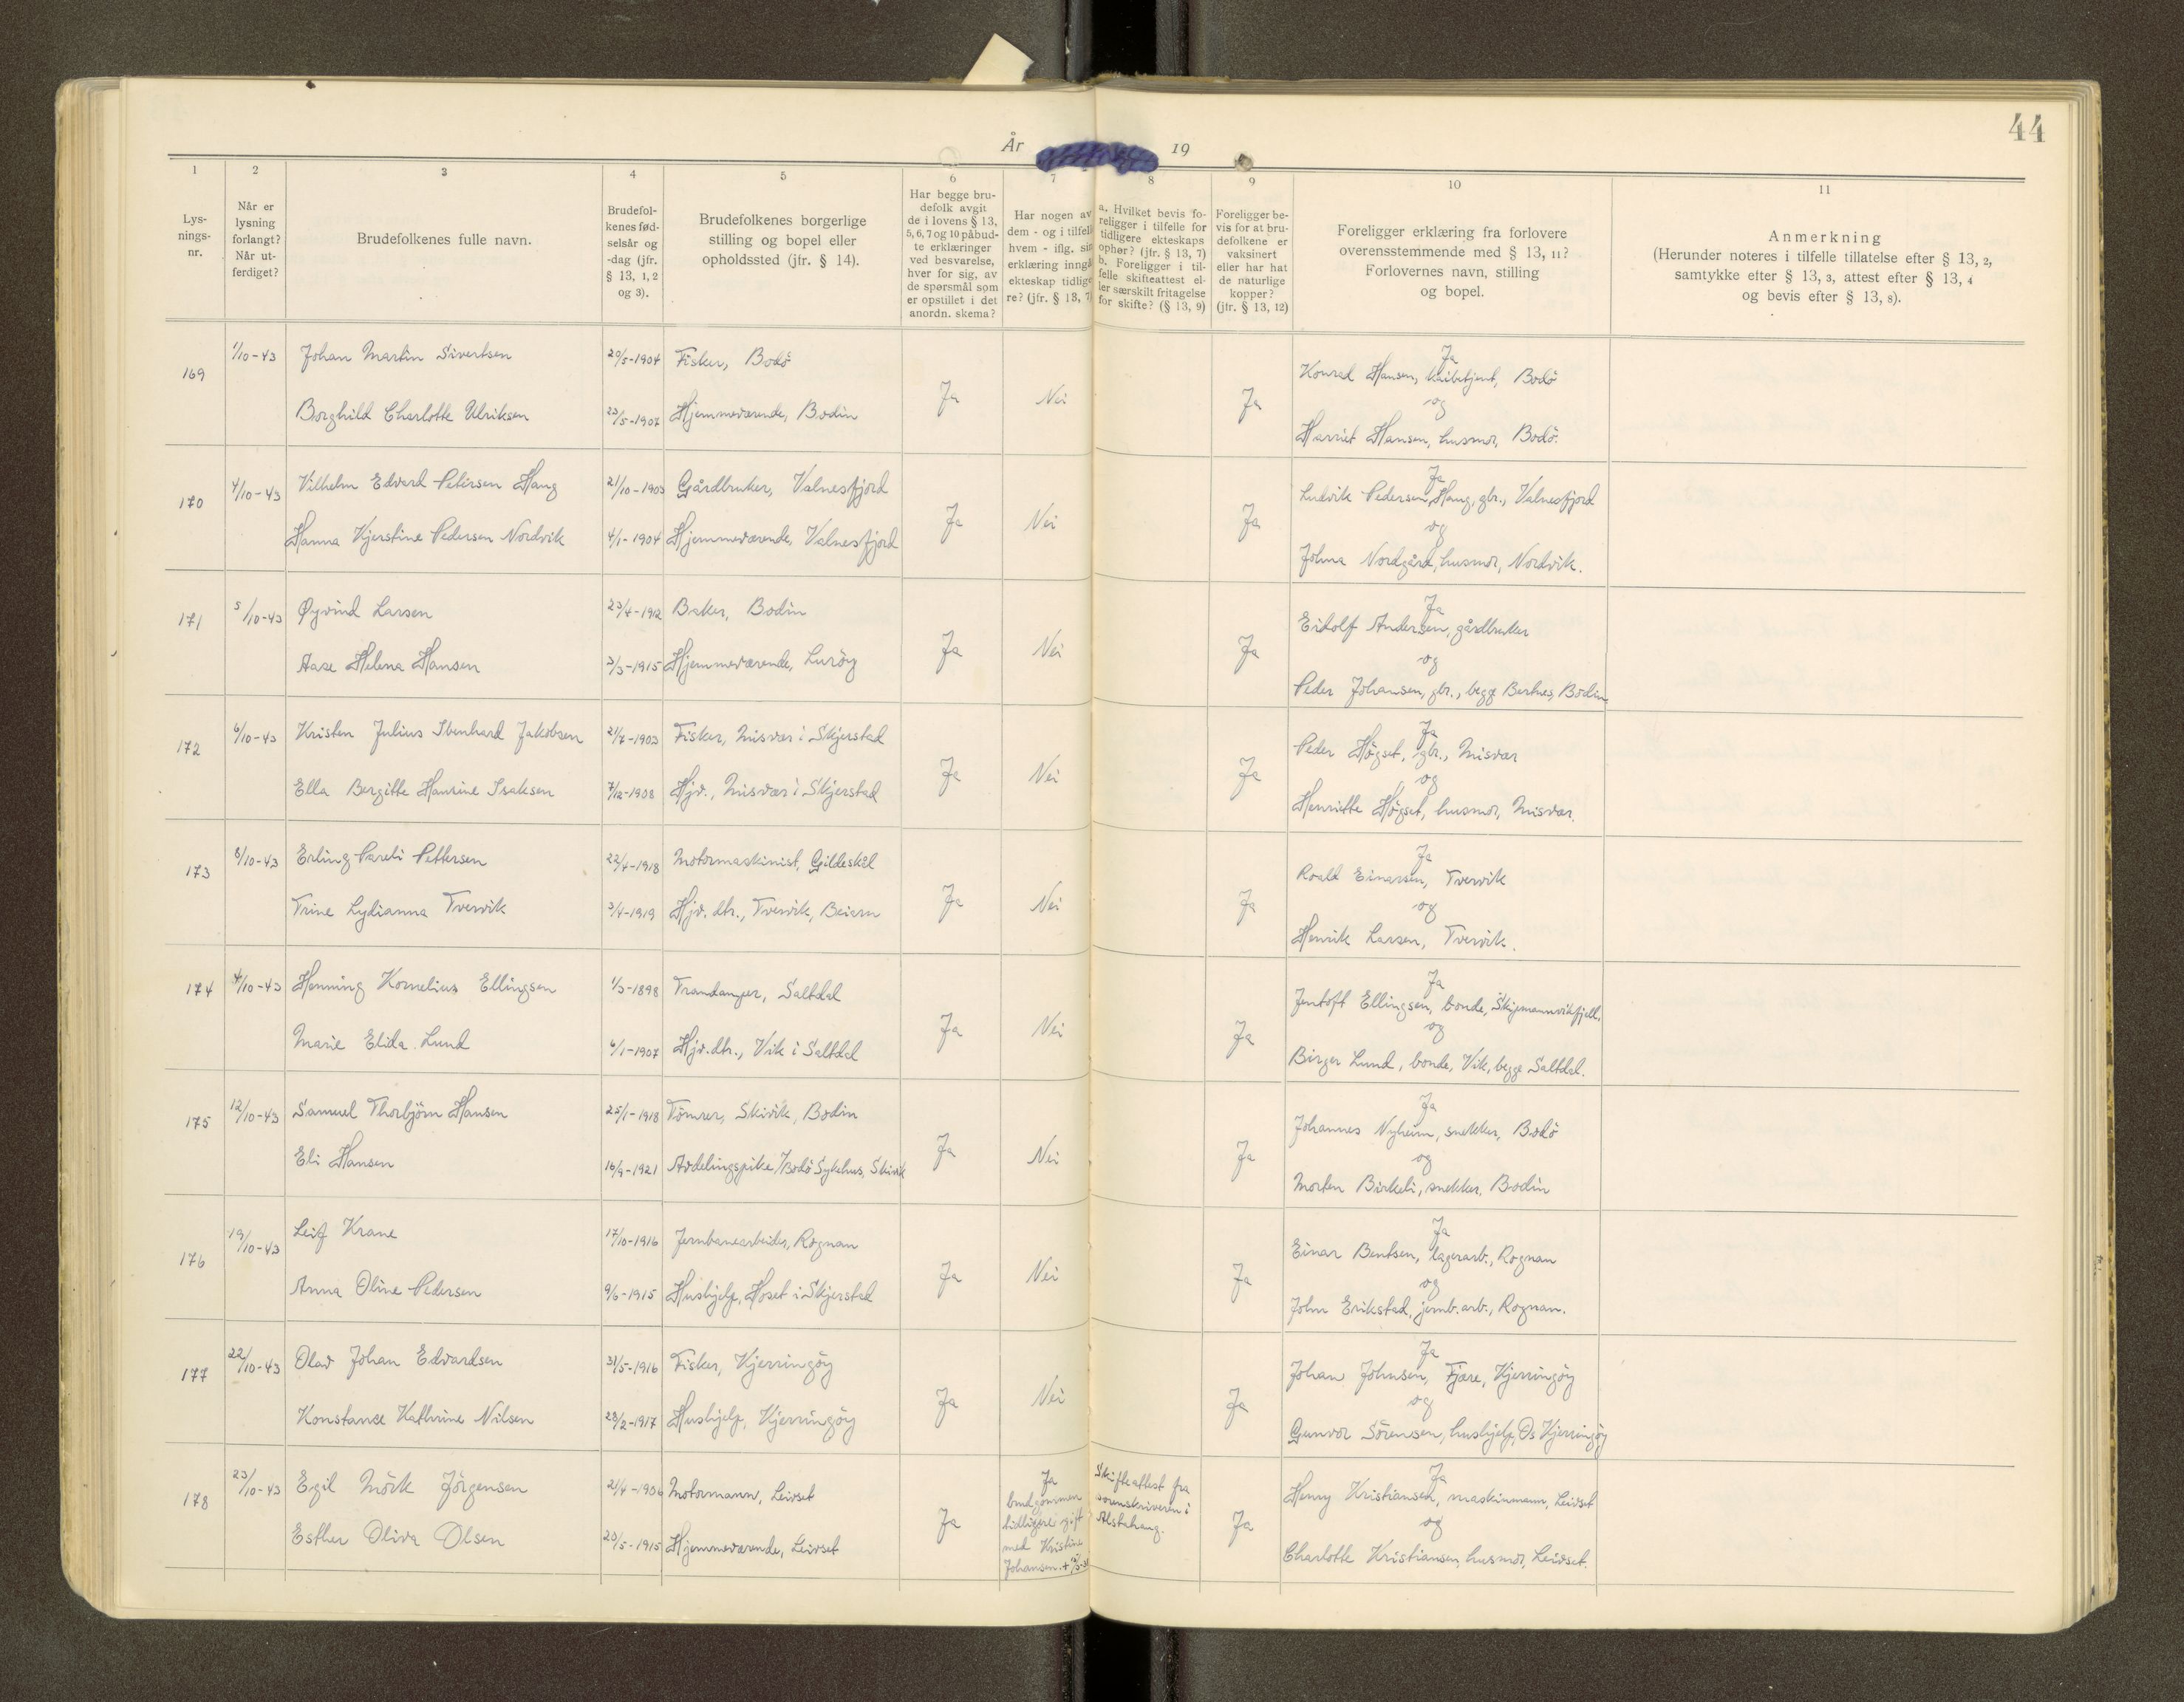 44
År 19
1 2 3 4 5 6 7 8 9 10 11
Lys-
nings-
nr.
Når er
lysning
forlangt?
Når ut-
ferdiget?
Brudefolkenes fulle navn.
Brudefol-
kenes fød-
selsår og
-dag (jfr.
§ 13, 1, 2
og 3).
Brudefolkenes borgerlige
stilling og bopel eller
opholdssted (jfr. § 14).
Har begge bru-
defolk avgit
de i lovens § 13,
5, 6, 7 og 10 påbud-
te erklæringer
ved besvarelse,
hver for sig, av
de spørsmål som
er opstillet i det
anordn. skema?
Har nogen av
dem - og i tilfell
hvem - iflg. sin
erklæring inngå
ekteskap tidlige
re? (jfr. § 13, 7
a. Hvilket bevis fo-
religger i tilfelle for
tidligere ekteskaps
ophør? (jfr. § 13, 7)
b. Foreligger i til-
felle skifteattest el-
ler særskilt fritagelse
for skifte? (§ 13, 9)
Foreligger be-
vis for at bru-
defolkene er
vaksinert
eller har hat
de naturlige
kopper?
(jfr. § 13, 12)
Foreligger erklæring fra forlovere
overensstemmende med § 13, 11?
Forlovernes navn, stilling
og bopel.
Anmerkning
(Herunder noteres i tilfelle tillatelse efter § 13, 2,
samtykke efter § 13, 3, attest efter § 13, 4
og bevis efter § 13, 8).
169 1/10-43 Johan Martin Sivertsen 20/5-1904 Fisker, Bodö
Borghild Charlotte Ulriksen 23/5-1907 Hjemmeværende, Bodin
Ja Nei Ja
Ja
Konrad Hansen, kaibetjent, Bodö
og
Harriet Hansen, husmor, Bodö.
170 4/10-43 Vilhelm Edvard Petersen Haug 21/10-1903 Gårdbruker, Valnesfjord
Hanna Kjerstine Pedersen Nordvik 4/1-1904 Hjemmeværende, Valnesfjord
Ja Nei Ja
Ja
Ludvik Pedersen Haug, gbr., Valnesfjord
og
Johna Nordgård, husmor, Nordvik.
171 5/10-43 Øyvind Larsen 23/4-1912 Baker, Bodin
Aase Helena Hansen 3/3-1915 Hjemmeværende, Luröy
Ja Nei Ja
Ja
Eidolf Andersen, gårdbruker
og
Peder Johansen, gbr., begge Bertnes, Bodin
172 6/10-43 Kristen Julius Ibenhard Jakobsen 21/7-1903 Fisker, Misvær i Skjerstad
Ella Bergitte Haurine Isaksen 7/12-1908 Hjv., Misvær i Skjerstad
Ja Nei Ja
Ja
Peder Högset, gbr., Misvær
og
Henriette Högset, husmor, Misvær.
173 8/10-43 Erling Pareli Pettersen 22/4-1918 Motormaskinist, Gildeskål
Trine Lydianna Tvervik 3/4-1919 Hjv. dtr., Tvervik, Beiarn
Ja Nei Ja
Ja
Roald Einarsen, Tvervik
og
Henrik Larsen, Tvervik.
174 4/10-43 Henning Kornelius Ellingsen 1/3-1898 Trandamper, Saltdal
Marie Elida Lund 6/1-1907 Hjv. dtr., Vik i Saltdal
Ja Nei Ja
Ja
Jentoft Ellingsen, bonde, Skjemannvikfjell,
og
Birger Lund, bonde, Vik, begge Saltdal.
175 12/10-43 Samuel Thorbjörn Hansen 25/1-1918 Tömrer, Skivik, Bodin
Eli Hansen 16/9-1921 Avdelingspike/Bodö Sykehus, Skivik
Ja Nei Ja
Ja
Johannes Nyheim, snekker, Bodö
og
Morten Birkeli, snekker, Bodin
176 19/10-43 Leif Krane 17/10-1916 Jernbanearbeider, Rognan
Anna Oline Pedersen 9/6-1915 Hushjelp, Höset i Skjerstad
Ja Nei Ja
Ja
Einar Bentsen, lagerarb., Rognan
og
John Erikstad, jernb.arb., Rognan.
177 22/10-43 Olav Johan Edvardsen 31/5-1916 Fisker, Kjerringöy
Konstanse Kathrine Nilsen 28/2-1917 Hushjelp, Kjerringöy
Ja Nei Ja
Ja
Johan Johnsen, Fjære, Kjerringöy
og
Gunvor Sörensen, hushjelp, Os Kjerringöy
178 23/10-43 Egil Mörk Jörgensen 21/4-1906 Motormann, Leivset
Esther Oliva Olsen 20/5-1915 Hjemmeværende, Leivset
Ja
Ja
brudgommen
tidligere gift
med Kristine
Johansen +
Skifteattest fra
sorenskriveren i
Alstahaug.
Ja
Ja
Henry Kristiansen, maskinmann, Leivset
og
Charlotte Kristiansen, husmor, Leivset.